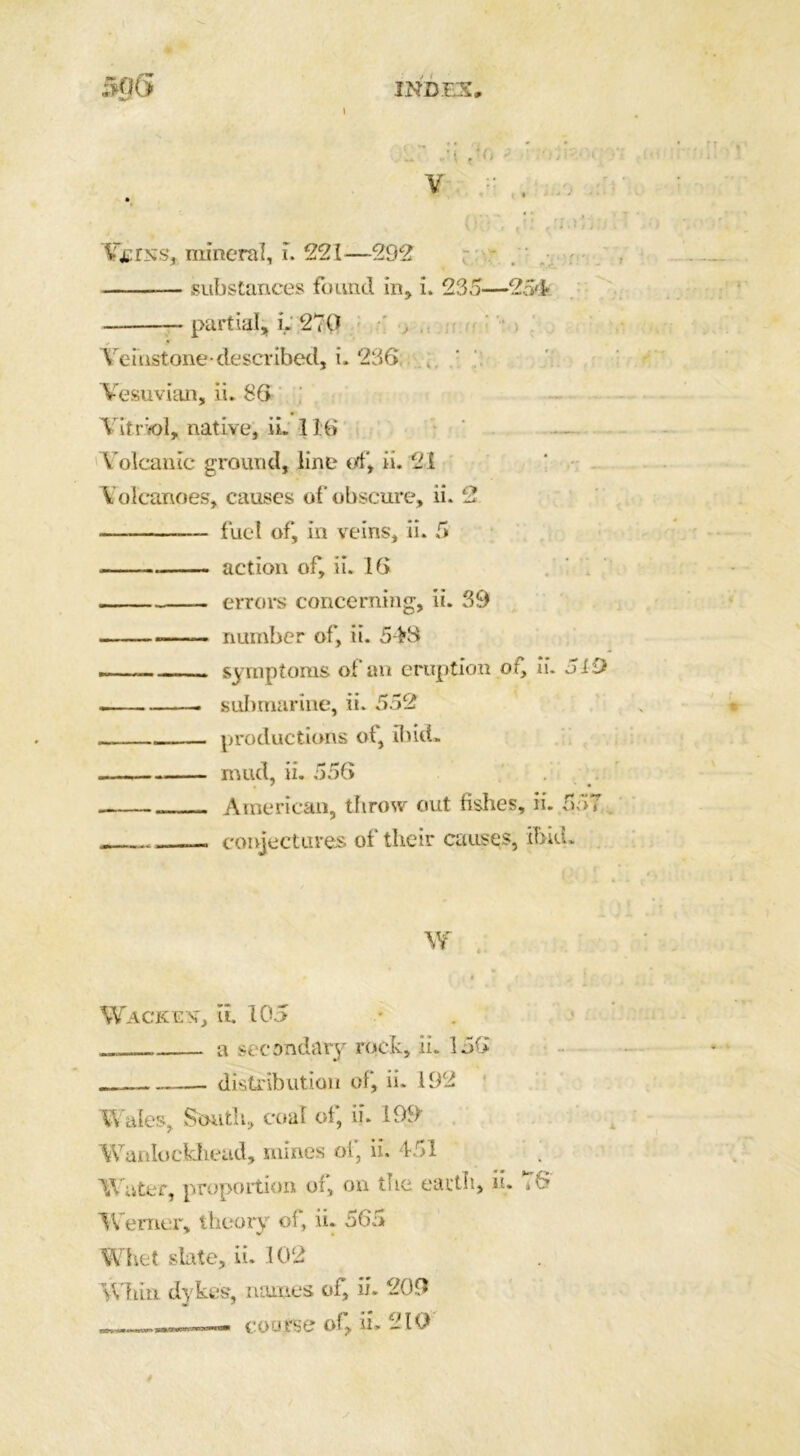 596 INDEX.
V
VEINS, mineral, i. 221—292
——— substances found in, i. 235—254
——— partial, i. 270
Veinstone described, i. 236
Vesuvian, ii. 86
Vitriol, native, ii. 116
Volcanic ground, line of, ii. 21
Volcanoes, causes of obscure, ii. 2
——— fuel of, in veins, ii. 5
——— action of, ii. 16
——— errors concerning, ii. 39
——— number of, ii. 548
——— symptoms of an eruption of, ii. 549
——— submarine, ii. 552
——— productions of, ibid.
——— mud, ii. 556
——— American, throw out fishes, ii. 557
——— conjectures of their causes, ibid.
W
WACKEN, ii. 105
——— a secondary rock, ii. 156
——— distribution of, ii. 192
Wales, South, coal of, ii. 199
Wanlockhead, mines of, ii. 451
Water, proportion of, on the earth, ii. 76
Werner, theory of, ii. 565
Whet slate, ii. 102
Whin dykes, names of, ii. 209
——— course of, ii. 210